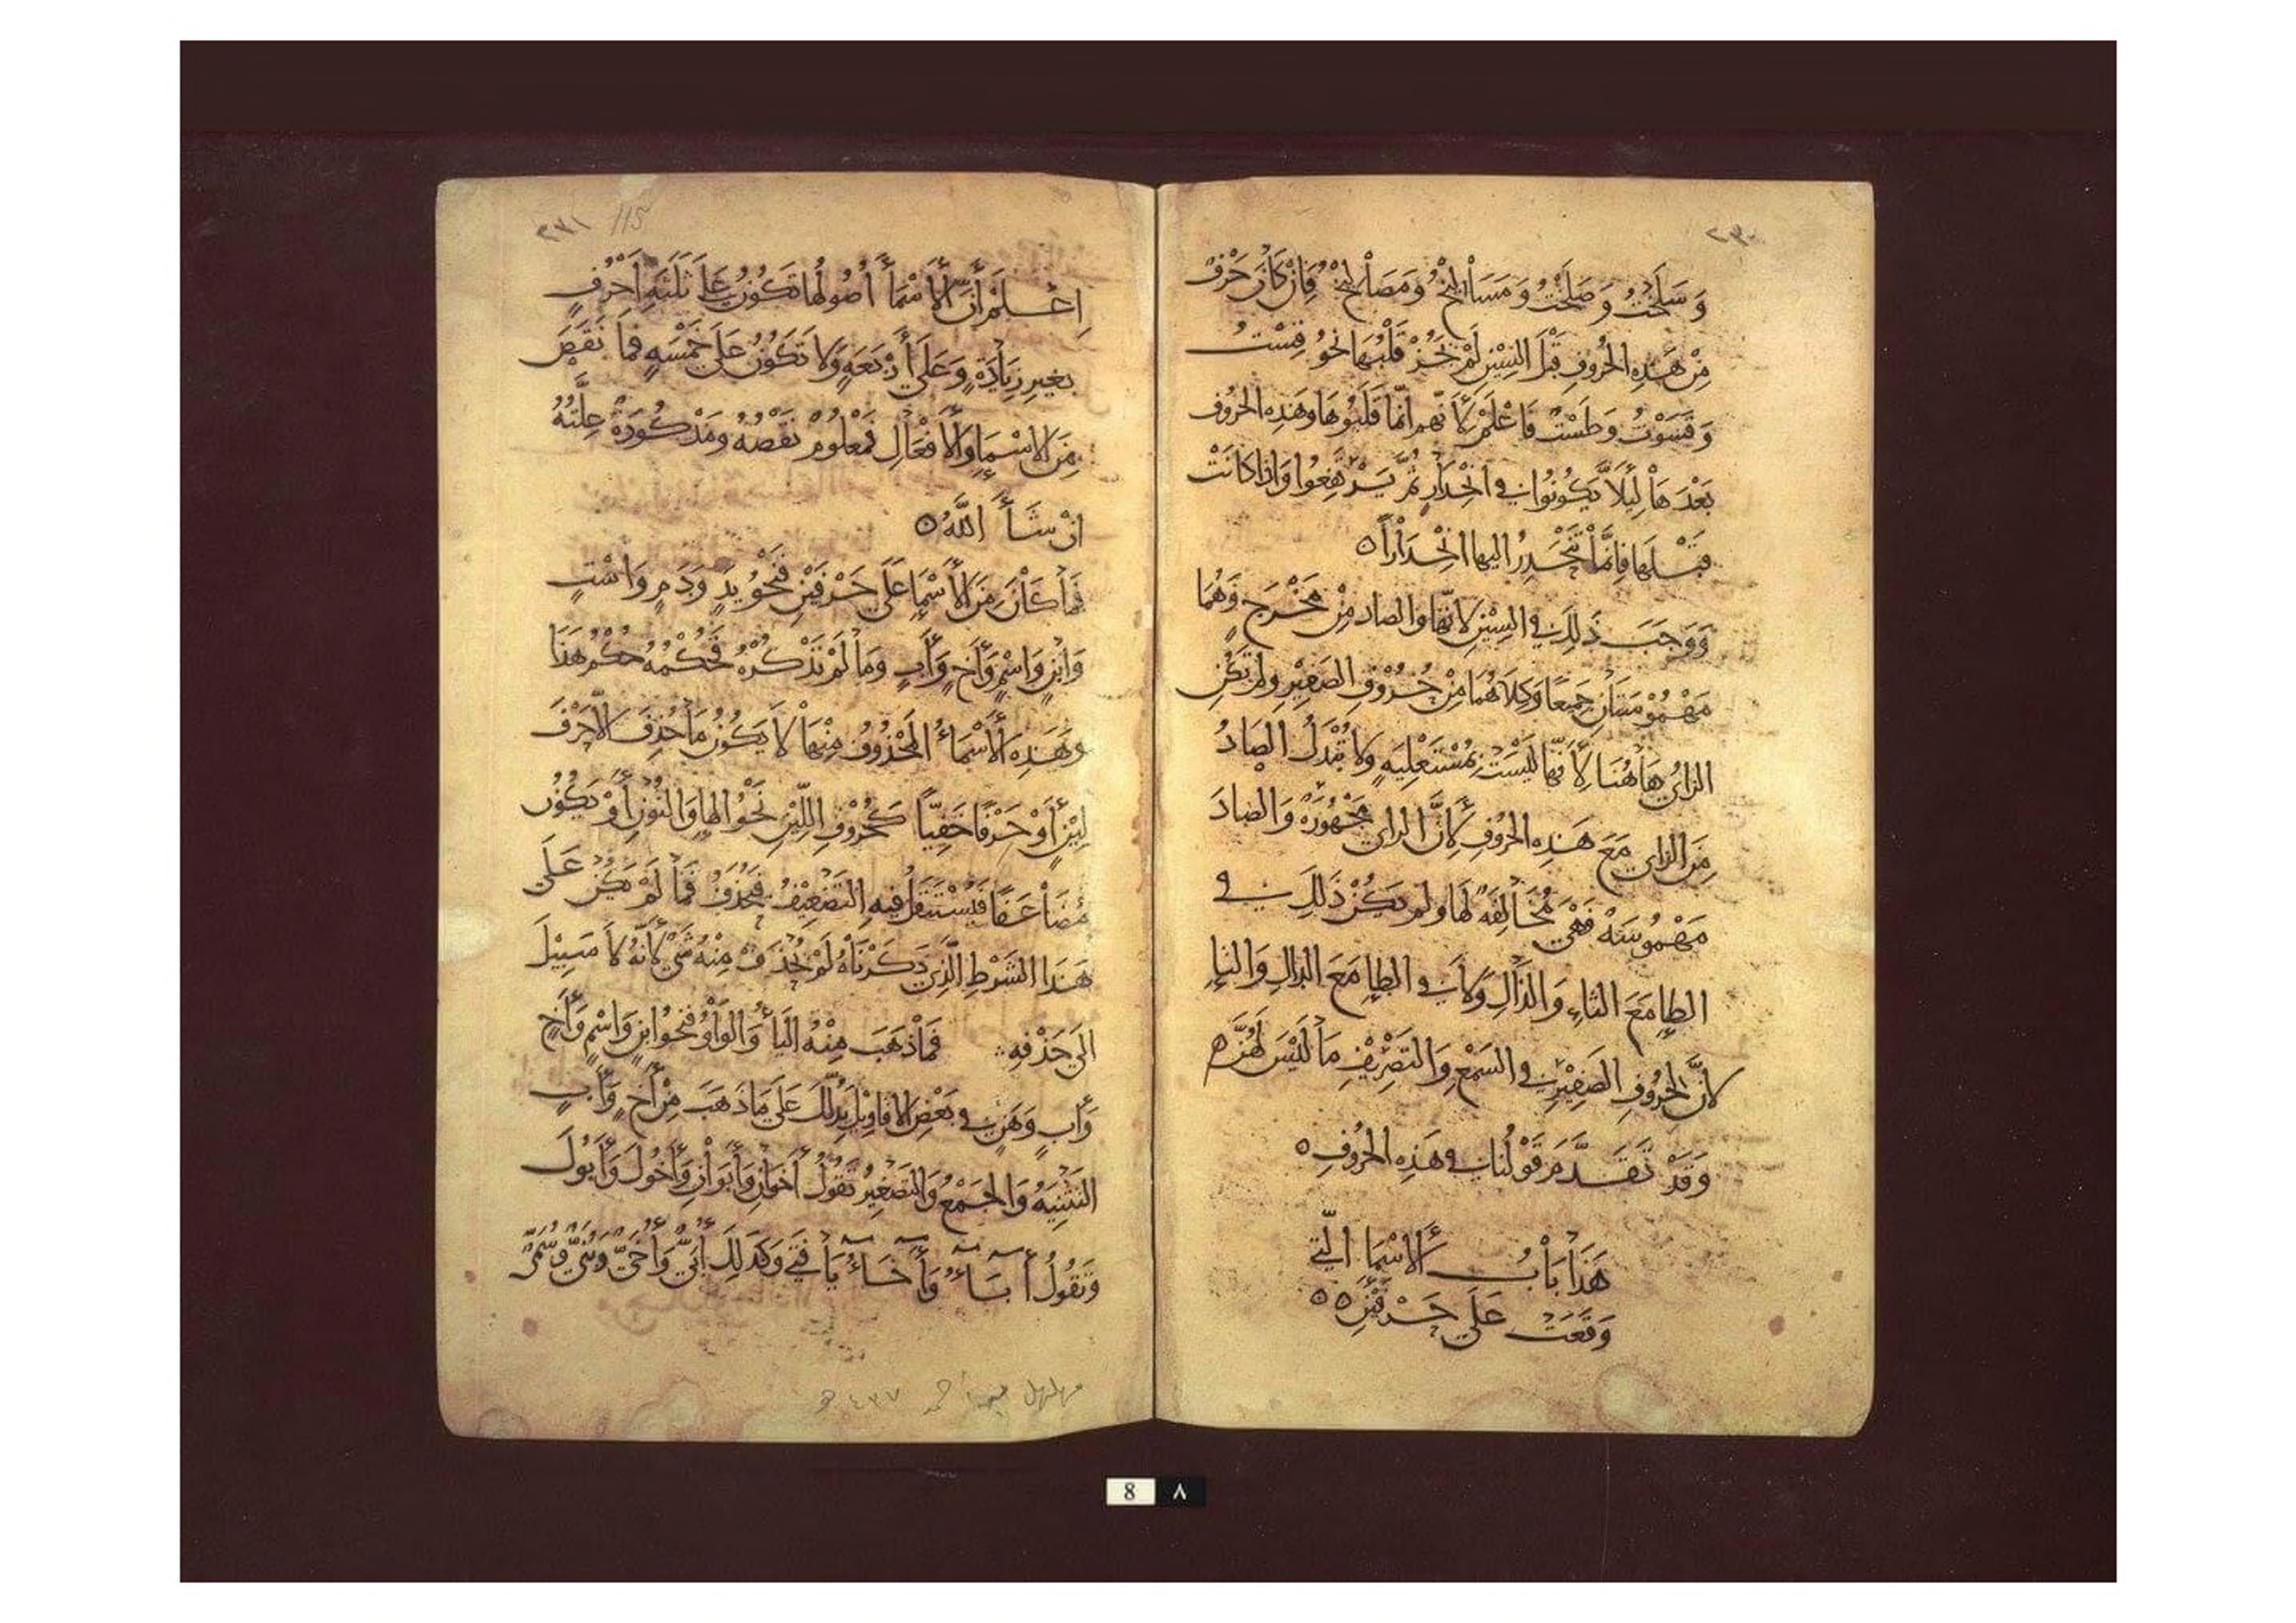 ٢٣٠
وَسَلَخْتُ وَصَلَخْتُ وَمَسَاْلِيْخُ وَمَصَاْلِيْخُ فَاِنْ كَانَ حَرْفٌ
مِنْ هَذِهِ الحُرُوفِ قَبْلَ السِّيْنِ لَمْ يَجُزْ قَلْبُهَا نَحْوُ قِسْتُ
وَقَسَوْتُ وَطَسْتٌ فَاعْلَمْ لِأَنَّهم اِنَّمَا قَلَبُوهَا وهَذِهِ الحُرُوف
بَعْدَهَاْ لِئَلَّا يَكُونُوا في انْحِدَاْرٍ ثُمَّ يَرْتَفِعُوا وَاِذَا كَانَتْ
قَبْلَهَا فَاِنَّمَاْ تَنْحَدِرُ اليها انْحِدَاْرًا ٥
وَوَجَبَ ذَلِكَ في السِّيْنِ لِأَنَّهَا وَالصاد مِنْ مَخْرَجٍ وَهُمَا
مَهْمُوْسَتَاْنِ جَمِيعًا وَكِلَاهُمَا مِنْ حُرُوْفِ الصَفِيْرِ ولم تَكُنِ
الزايُ هَاهُنَا لِأَنَّهَا لَيْسَتْ بِمُسْتَعْلِيَهٍ وَلَا تُبْدَلُ الصادُ
مِنَ الزاي مَعَ هَذِهِ الحُرُوفِ لِأَنَّ الزاي مَجْهُوْرَهٌ وَالصَادَ
مَهْمُوسَهٌ فَهْيَ مُخَاْلِفَهٌ لَهَا وَلم يَكُنْ ذَلِكَ في
الطاِ مَعَ التاءِ وَالدَّاْلِ وَلَا في الظاِ مَعَ الذالِ وَالثاِ
لاَنَّ لِحُرُوفِ الصَفِيْرِ في السَمْعِ وَالتَصْرِيْفِ مَاْ لَيْسَ لَهُنَّ ه
وَقَدْ تَقَدَّمَ قَوْلُنَا في هَذِهِ الحُرُوفِ ٥
هَذَاْ بَاْبُ الأَسْمَاِ الَّتي
وَقَعَتْ عَلَى حَرْفَيْنِ ٥٥
٢٣١ 115
اِعْلَمْ أَنَّ الأَسْمَاْءَ أُصُولُهَا تَكُوْنُ عَلَى ثَلَثَهِ اَحْرُفٍ
بغَيرِ زِيَاْدَهٍ وَعَلَى أَرْبَعَهٍ وَلَا تَكُوْنُ عَلَى خَمْسَهٍ فما نَقَصَ
مِنَ الاَسْمَاِ وَالاَفْعَالِ فَمَعْلُومٌ نَقْصُهُ ومَذْكُورَةٌ عِلَّتُهُ
اِنْ شَاْءَ اللَّهُ ٥
فَمَاْ كَانَ مِنَ الأَسْمَاِ عَلَى حَرْفَيْنِ فَنَحْوُ يَدٍ وَدَمٍ وَاسْتٍ
وَابْنٍ وَاسْمٍ وَأَخٍ وَأَبٍ وَمَا لَمْ نَذْكُرْهُ فَحُكْمُهُ حُكْمُ هَذَا
وهَذِهِ الأَسْمَاءُ المَحْذُوْفُ مِنْهَاْ لَاْ يَكُوْنُ مَاْ حُذِفَ الّا حَرْفَ
لِيْنٍ أَوْ حَرْفًا خَفِيّاً كَحُرُوْفِ اللِّيْنِ نَحْوُ الهاِ وَالنُوْنِ أَوْ يَكُوْنُ
مُضَاْعَفًا فَيُسْتَثْقَلُ فيهِ التَضْعِيْفُ فيُحْذَفُ فَمَا لَمْ يَكُنْ عَلَى
هَذَا الشَرْطِ الَّذِي ذَكَرْنَاهُ لَمْ يُحْذَفْ مِنْهُ شَيٌ لِأَنَّهُ لَا سَبِيْلَ
الَى حَذْفِهِ فَمَاْ ذَهَبَ مِنْهُ اليَاْءُ وَالوَاْوُ فنَحْوُ ابنٍ وَاسْمٍ وَأَخٍ
وَأَبٍ وَهَنٍ في بَعْضِ الاقَاوِيْلِ يَدُلُّكَ عَلَى مَا ذَهَبَ مِنْ أَخٍ وَأَبٍ
التَثْنِيَهُ وَالجَمْعُ وَالتَصْغِيرُ تَقُولُ أَخَوَاْنِ وَأَبَوَاْنِ وَأَخُوْكَ وَأَبُوْكَ
وَتَقُولُ أَبَاْءٌ وَأَخَاْءٌ يَاْ فَتَى وَكَذَلِكَ أُبَيٌّ وَأُخَيٌّ وَبُنَيٌّ وَسُمَيٌّ
مهلهل ٤٣٧ ه
8 ٨